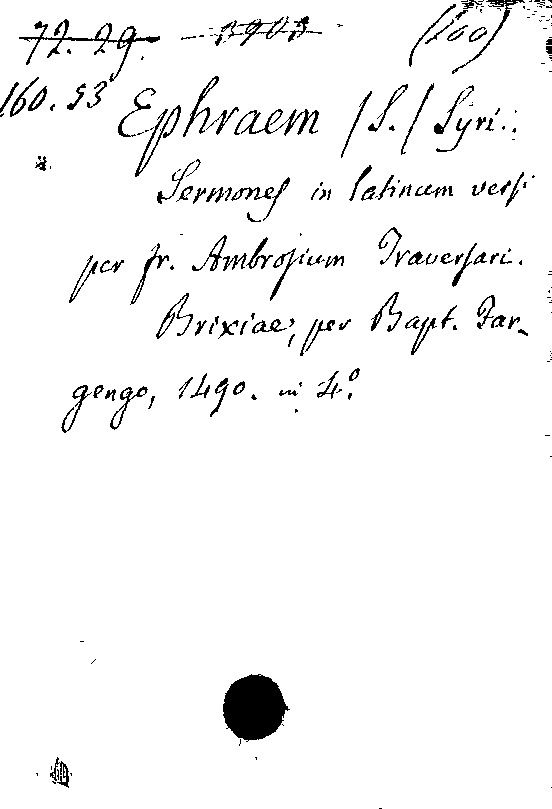 72. 29. 3903 (200)
160. 53 Ephraem /S./ Syri.
Sermones in latinum versi
per fr. Ambrosium Traversari.
Brixiae, per Bapt. Far-
gengo, 1490. in 4.º